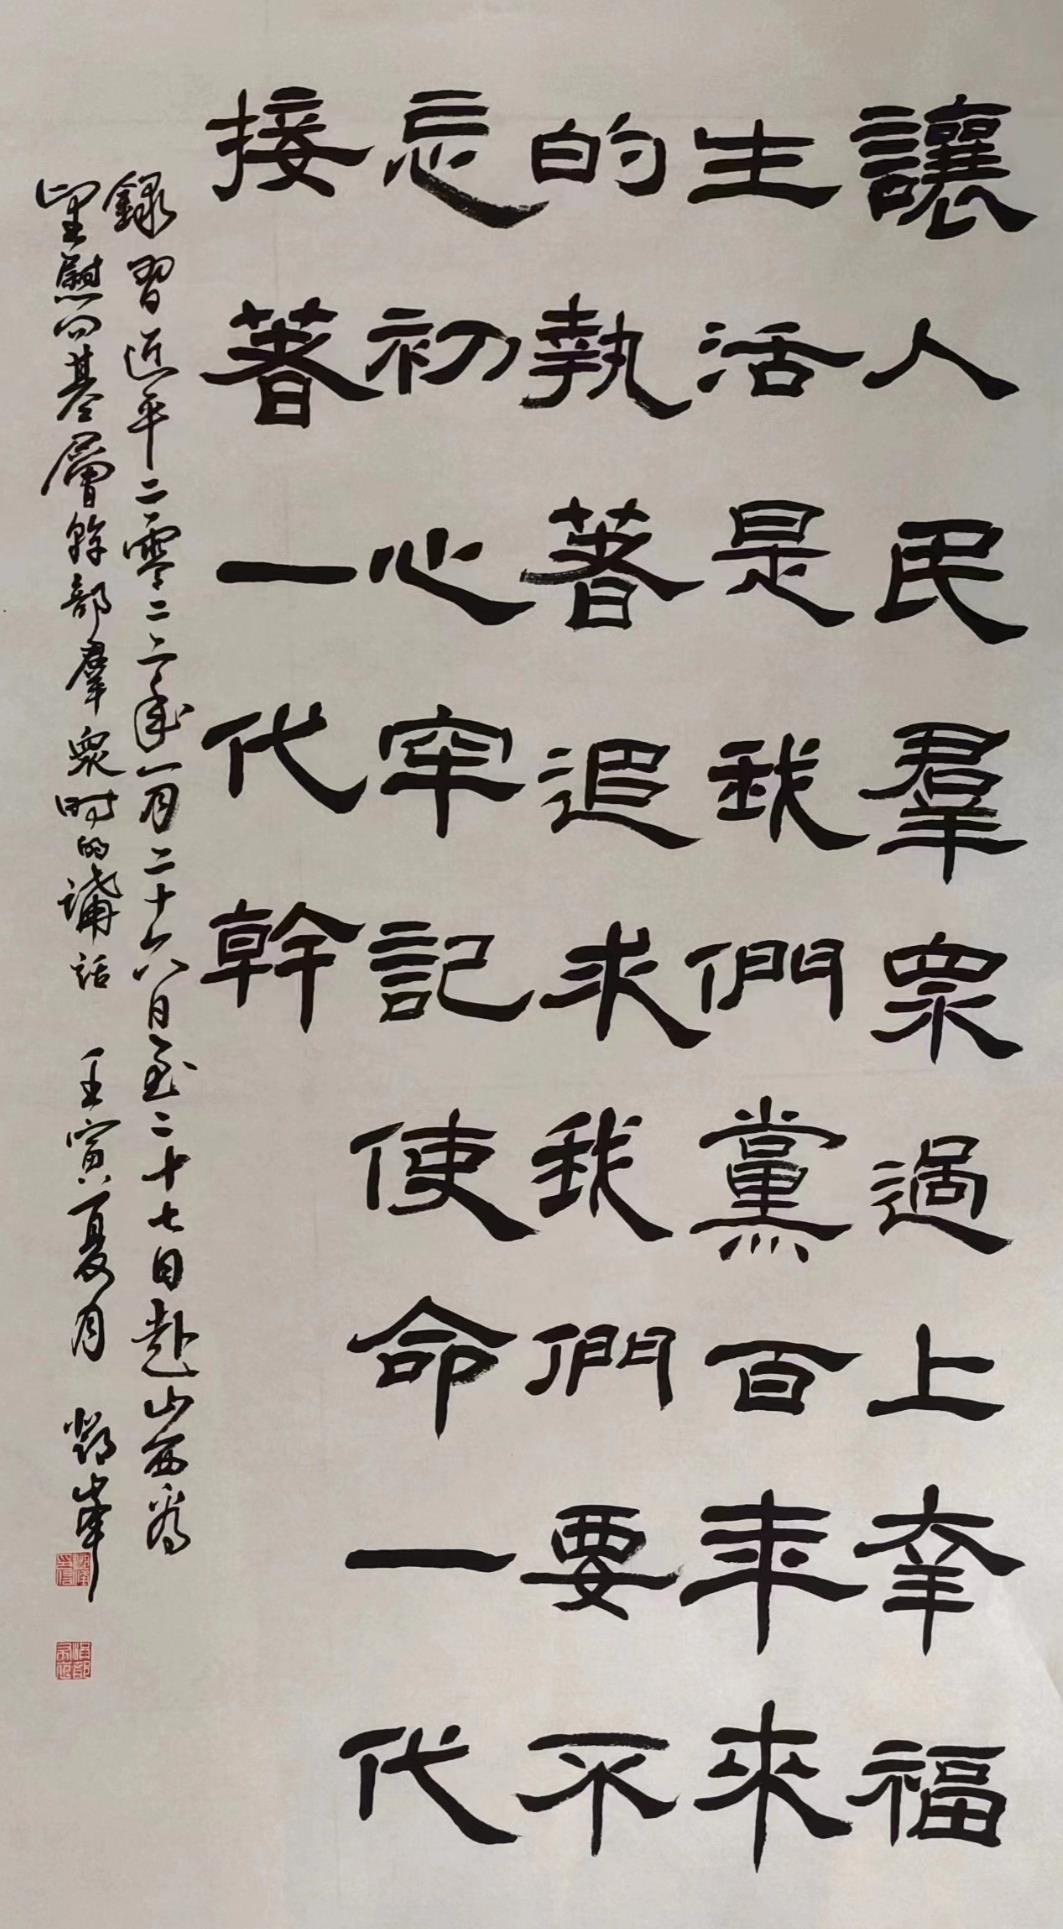 讓人民羣眾過上幸福
生活是我們黨百年來
的執著追求我們要不
忘初心牢記使命一代
接著一代幹
錄習近平二零二二年一月二十六日至二十七日赴山西看
望慰問基層幹部羣眾時的講話 壬寅夏月 鄧峯